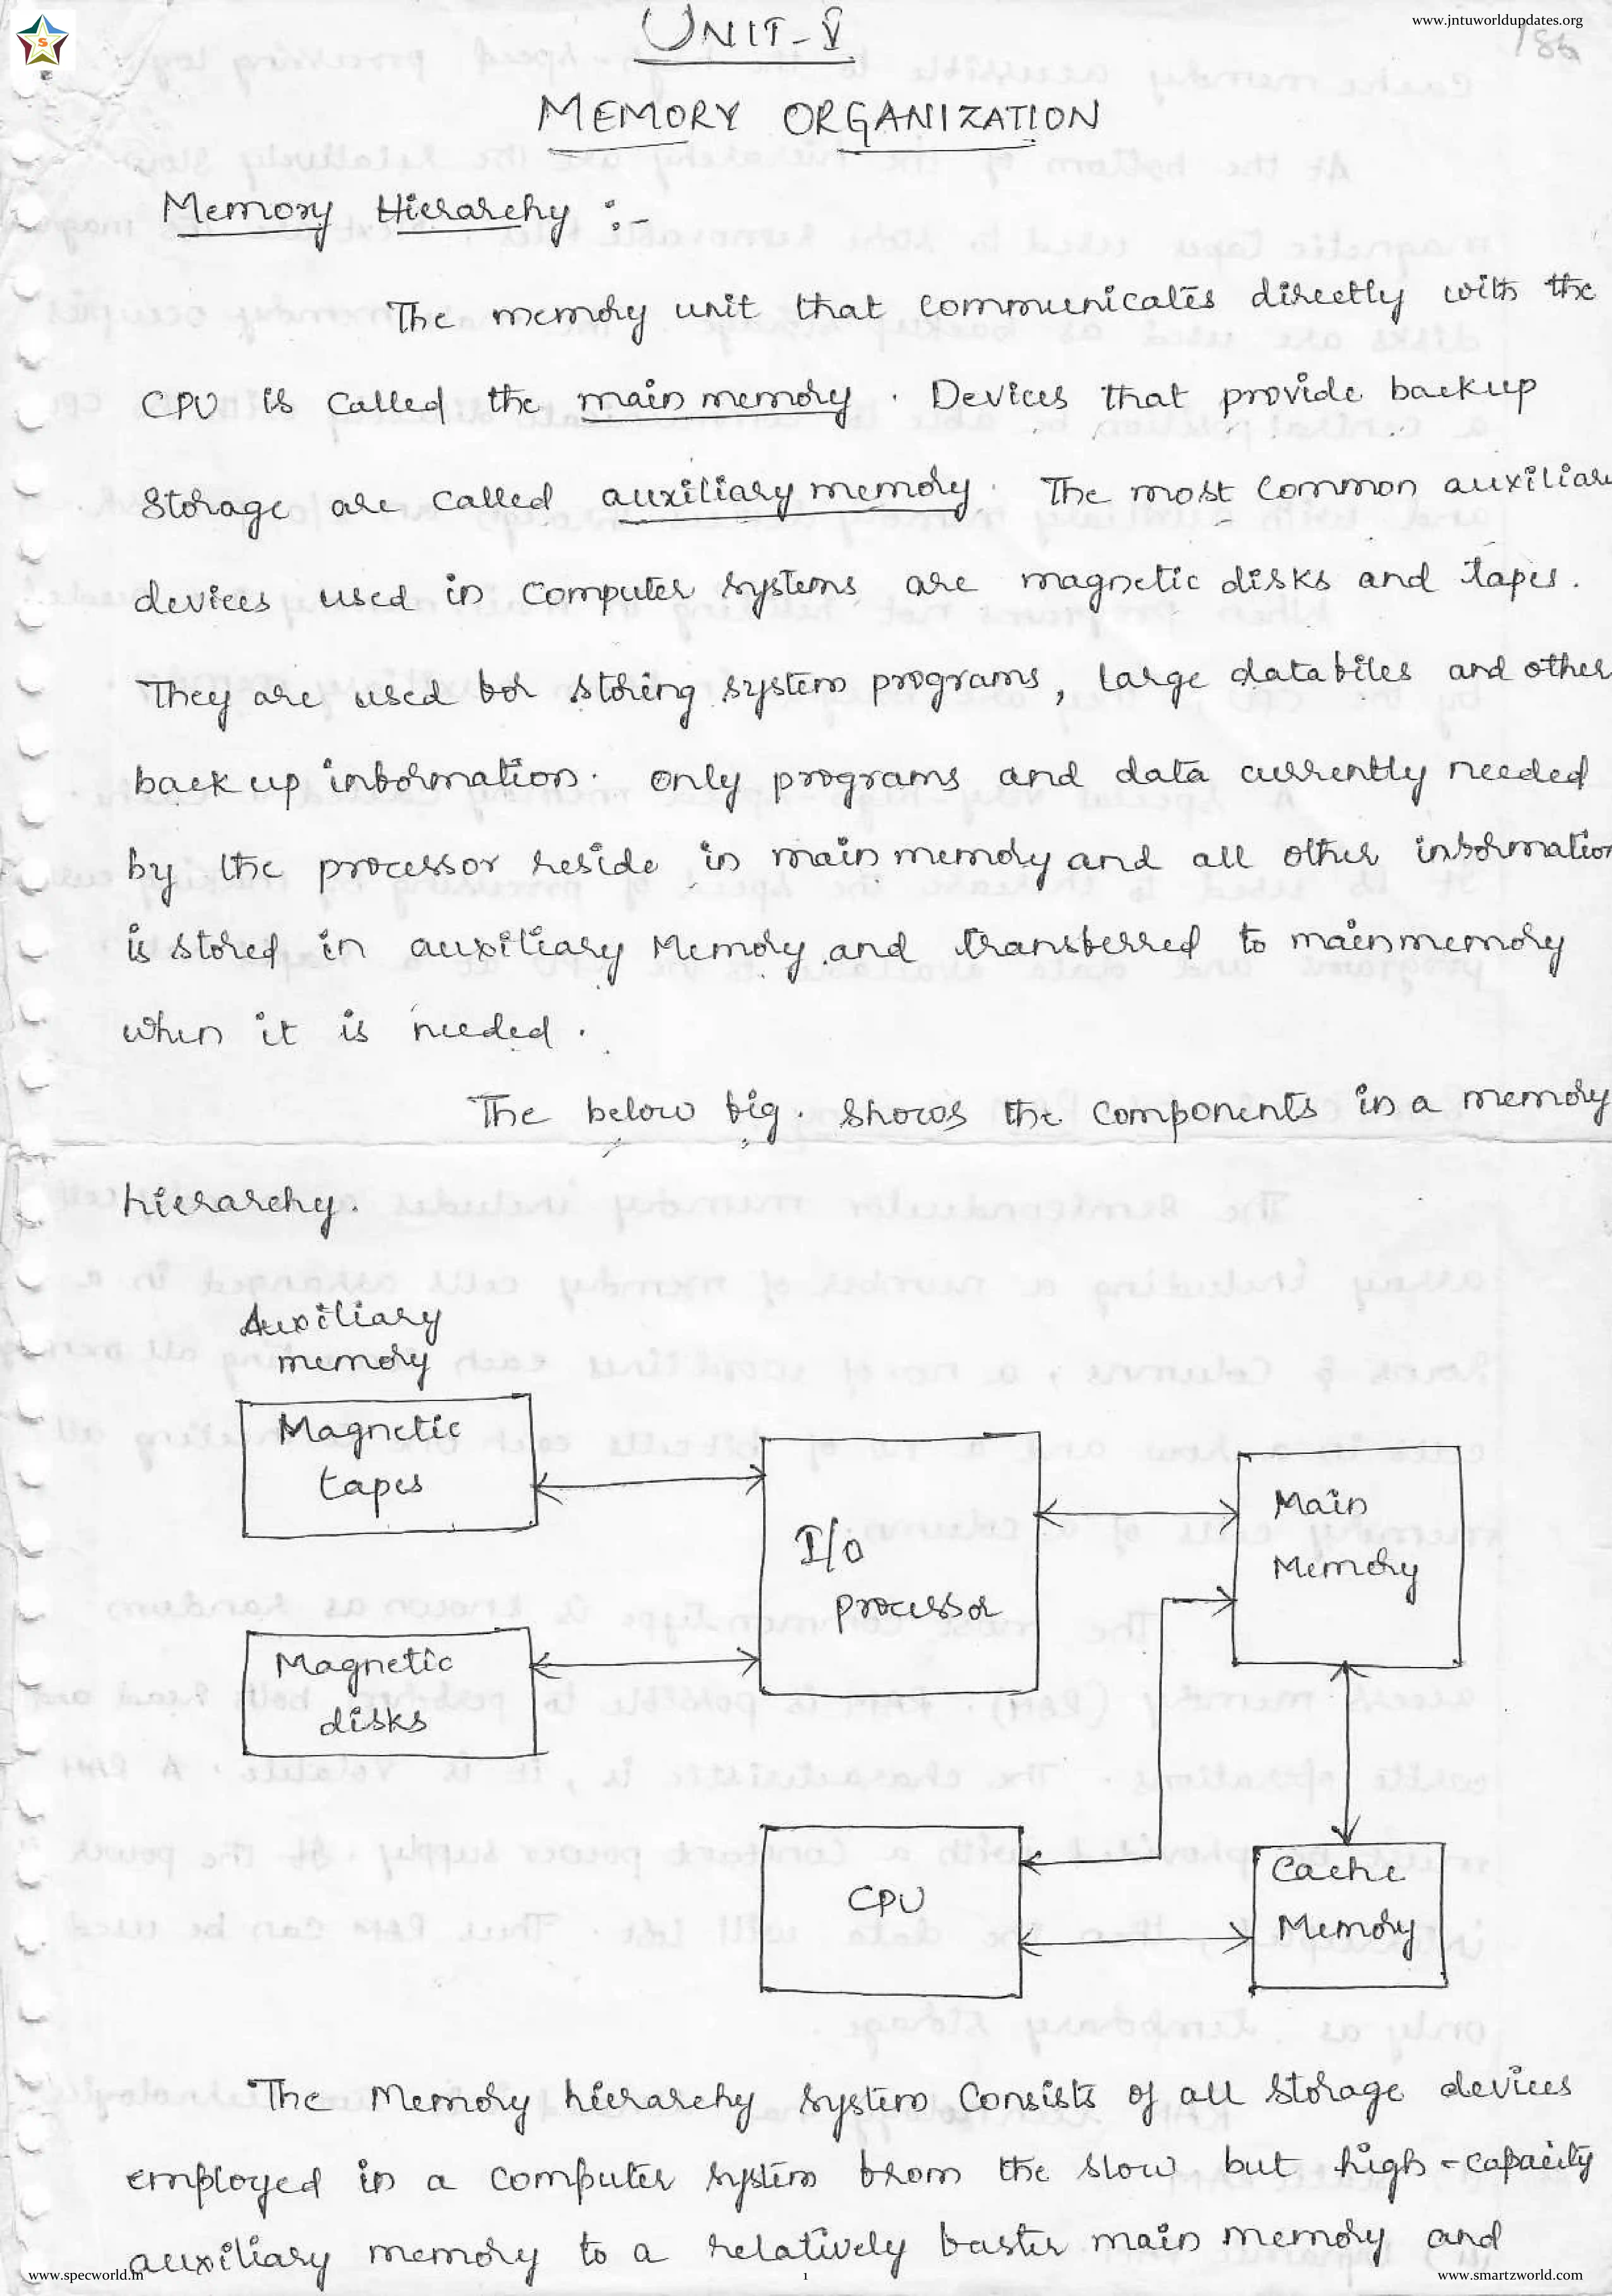 www.jntuworldupdates.org
UNIT-V
MEMORY ORGANIZATION
Memory Hierarchy :-
The memory unit that communicates directly with the
CPU is called the main memory. Devices that provide backup
Storage are called auxiliary memory. The most common auxiliary
devices used in computer systems are magnetic disks and tapes.
They are used for storing system programs, large data files and other
back up information. only programs and data currently needed
by the processor reside in main memory and all other information
is stored in auxiliary Memory and transferred to main memory
when it is needed.
The below fig. shows the components in a memory
hierarchy.
Auxiliary
memory
Magnetic
tapes
I/O
processor
Main
Memory
Magnetic
disks
CPU
Cache
Memory
The Memory hierarchy system consists of all storage devices
employed in a computer system from the slow but high-capacity
auxiliary memory to a relatively faster main memory and
www.specworld.in
1
www.smartzworld.com